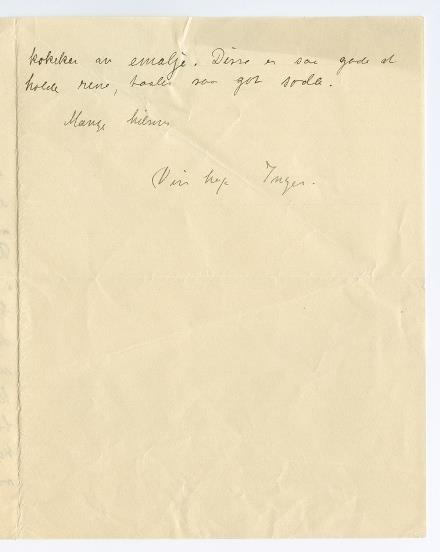 kokekar av emalje. Disse er saa gode at
holde rene, taaler saa got soda.
Mange hilsner
Din Inger.